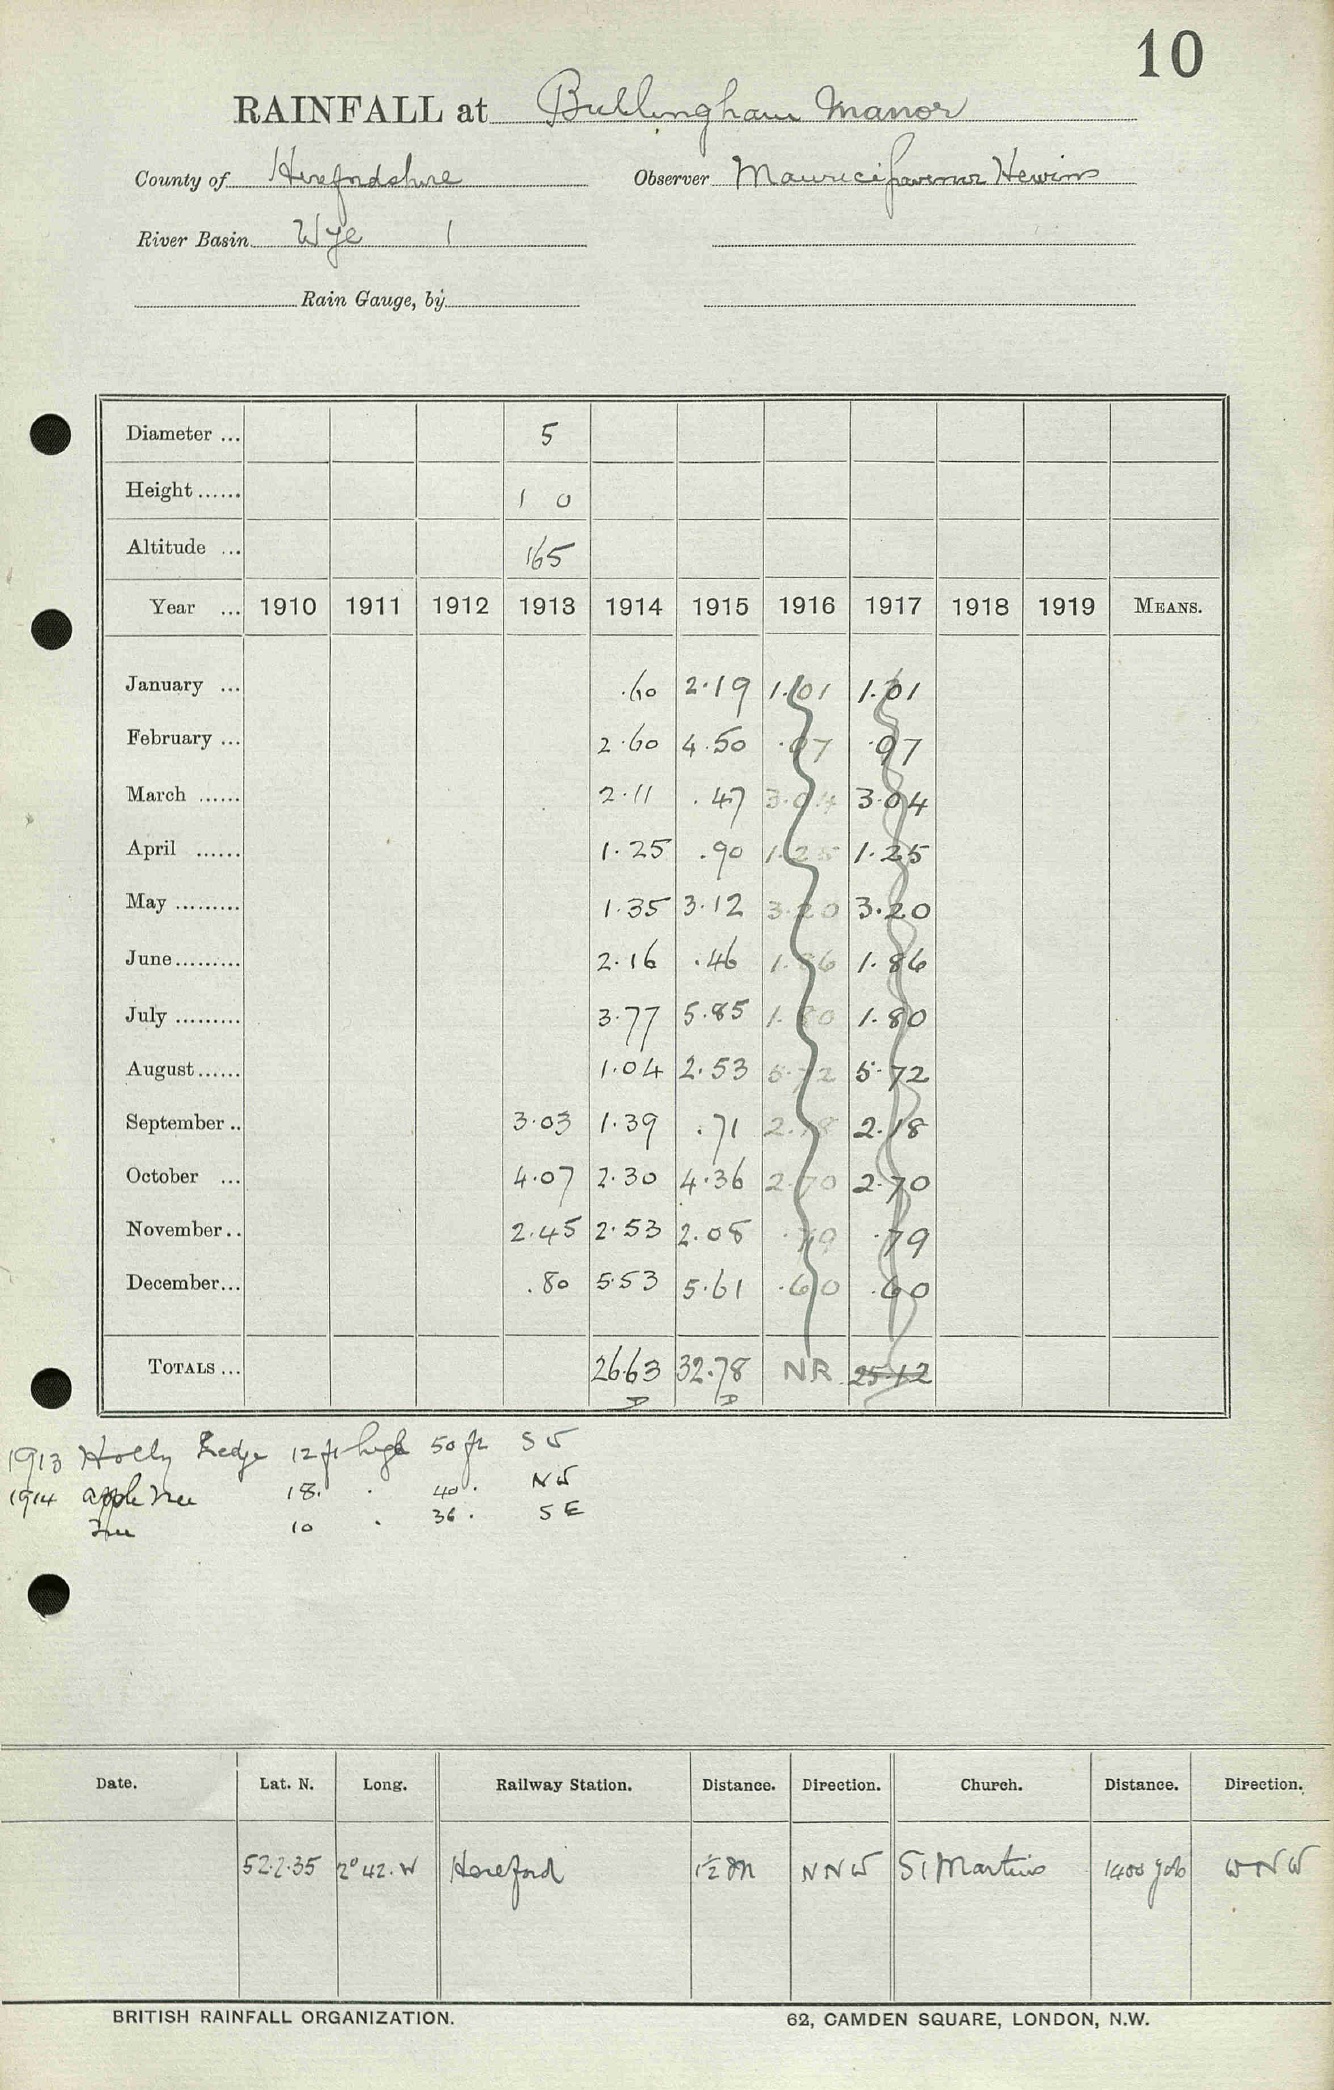 10
RAINFALL at Bullingham Manor
County of Herefordshire Observer Maurice Hewins
River Basin Wye 1
Rain Gauge, by
Diameter ... 5
Height ...... 1 0
Altitude ... 165
Year ... 1910 1911 1912 1913 1914 1915 1916 1917 1918 1919 MEANS.
January ... .60 2.19 1.01 1.01
February ... 2.60 4.50 .97 .97
March ...... 2.11 .47 3.04 3.04
April ...... 1.25 .90 1.25 1.25
May ......... 1.35 3.12 3.20 3.20
June ......... 2.16 .46 1.86 1.86
July ......... 3.77 5.85 1.80 1.80
August ...... 1.04 2.53 5.72 5.72
September .. 3.03 1.39 .71 2.18 2.18
October ... 4.07 2.30 4.36 2.70 2.70
November .. 2.45 2.53 2.08 .79 .79
December ... .80 5.53 5.61 .60 .60
TOTALS ... 26.63 32.78 NR 25.12
D D
1913 Holly Hedge 12 ft high 50 ft SW
1914 apple tree 18 . 40 . NW
Tree 10 . 36 . SE
Date. Lat. N. Long. Railway Station. Distance. Direction. Church. Distance. Direction.
52.2.35 2° 42. W Hereford 1½ M NNW St Martins 1400 yds WNW
BRITISH RAINFALL ORGANIZATION. 62, CAMDEN SQUARE, LONDON, N.W.